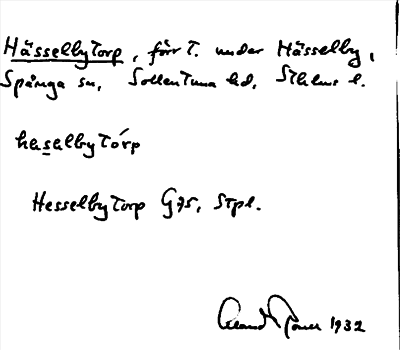 Hässelbytorp, förr t. under Hässelby,
Spånga sn, Sollentuna hd, Sthlms l.
hesalbytórp
Hesselbytorp G75, Stpl.
1932